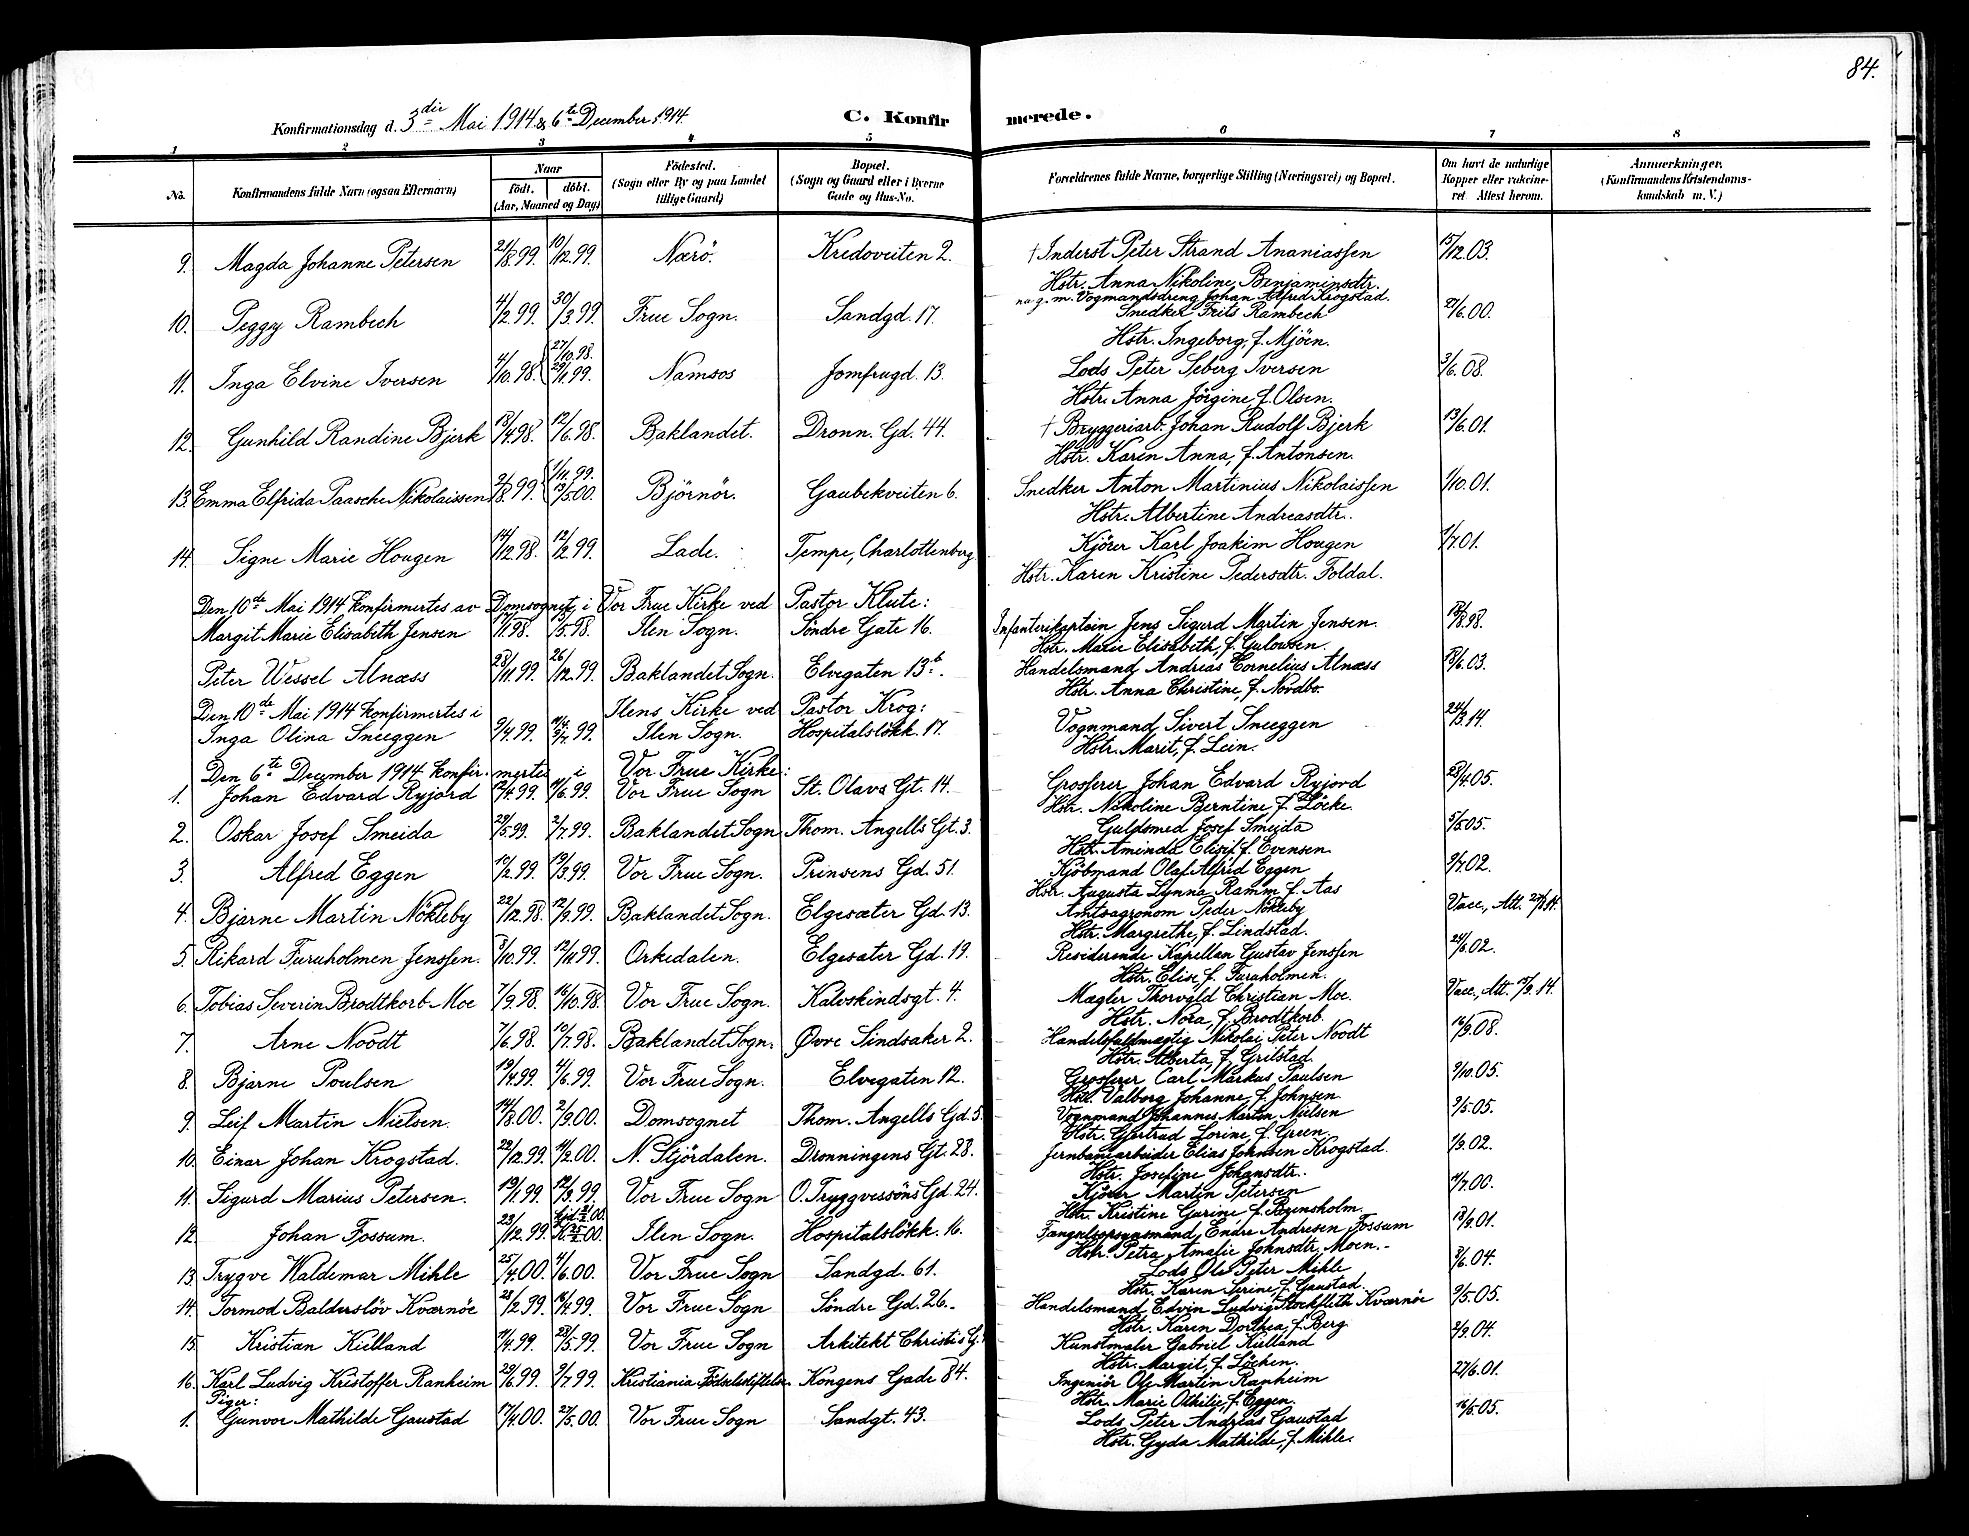 84.
Konfirmationsdag d. 3die Mai 1914 & 6te December 1914. C. Konfirmerede.
1 2 3 4 5 6 7 8
No. Konfirmandens fulde Navn (ogsaa Efternavn) Naar født. døbt. (Aar, Maaned og Dag) Fødested. (Sogn eller By og paa Landet tillige Gaard) Bopæl. (Sogn og Gaard eller i Byerne Gade og Hus-No. Forældrenes fulde Navne, borgerlige Stilling (Næringsvei) og Bopæl. Om havt de naturlige Kopper eller vaccineret. Attest herom. Anmerkninger. (Konfirmandens Kristendomskundskab m. V.)
9. Magda Johanne Petersen 21/8.99. 10/12.99. Nærö. Kredoveiten 2. † Inderst Peter Strand Ananiassen 15/12.03.
Hstr. Anna Nikoline Benjaminsdtr.
nu g. m. Vognmandsdreng Johan Alfred Krogstad.
10. Peggy Rambech 4/2.99. 30/3.99. Frue Sogn. Sandgd. 17. Snedker Frits Rambech 27/6.00.
Hstr. Ingeborg, f. Mjöen.
11. Inga Elvine Iversen 4/10.98. 27/10.98. 29/1.99. Namsos Jomfrugd. 13. Lods Peter Seberg Iversen 3/6.08.
Hstr. Anna Jörgine, f. Olsen.
12. Gunhild Randine Bjerk 13/4.98. 12/6.98. Baklandet. Dronn. Gd. 44. † Bryggeriarb. Johan Rudolf Bjerk 13/6.01.
Hstr. Karen Anna, f. Antonsen.
13. Emma Elfrida Paasche Nikolaissen 2/8.99. 1/11.99. 13/5.00. Björnör. Gaubekveiten 6. Snedker Anton Martinius Nikolaissen 1/10.01.
Hstr. Albertine Andreasdtr.
14. Signe Marie Hougen 14/12.98. 12/2.99. Lade. Tempe, Charlottenberg Kjörer Karl Joakim Hougen 1/7.01.
Hstr. Karen Kristine Pedersdtr. Foldal.
Den 10de Mai 1914 konfirmertes av Domsognet i Vor Frue Kirke ved Pastor Klute:
Margit Marie Elisabeth Jensen 17/1.98. /5.98. Ilen Sogn. Söndre Gate 16. Infanterikaptein Jens Sigurd Martin Jensen. 18/8.98.
Hstr. Marie Elisabeth, f. Gulowsen.
Peter Wessel Alnæss 28/11.99. 26/12.99. Baklandet Sogn. Elvegaten 13b. Handelsmand Andreas Cornelius Alnæss 18/6.03.
Hstr. Anna Christine, f. Nordbo.
Den 10de Mai 1914 konfirmertes i Ilens Kirke ved Pastor Krog:
Inga Olina Sneeggen 9/4.99. 99. Ilen Sogn. Hospitalslökk. 17. Vognmand Sivert Sneeggen 24/3.14.
Hstr. Marit, f. Lein.
Den 6te December 1914 konfirmertes i Vor Frue Kirke:
1. Johan Edvard Ryjord 12/4.99. 11/6.99. Vor Frue Sogn St. Olavs Gt. 14. Grosserer Johan Edvard Ryjord 28/4.05.
Hstr. Nikoline Berntine, f. Löcke.
2. Oskar Josef Smeida 29/5.99. 2/7.99. Baklandet Sogn Thom. Angells Gt. 3. Guldsmed Josef Smeida 5/5.05.
Hstr. Aminda Elisif, f. Evensen.
3. Alfred Eggen 10/2.99. 19/3.99. Vor Frue Sogn. Prinsens Gd. 51. Kjöbmand Olaf Alfrid Eggen 9/7.02.
Hstr. Augusta Lynna Ramm f. Aas
4. Bjarne Martin Nökleby 22/12.98. 12/9.99. Baklandet Sogn. Elgesæter Gd. 13. Amtsagronom Peder Nökleby Vacc., Att.
Hstr. Margrethe, f. Lindstad.
5. Rikard Furuholmen Jenssen. 3/10.99. 12/11.99. Orkedalen. Elgesæter Gd. 19. Residerende Kapellan Gustav Jenssen 24/6.02.
Hstr. Elise, f. Furuholmen.
6. Tobias Severin Brodtkorb Moe 7/9.98. 16/10.98. Vor Frue Sogn. Kalvskindsgt. 4. Mægler Thorvald Christian Moe. Vacc., Att. 17/9.14.
Hstr. Nora, f. Brodtkorb.
7. Arne Noodt 7/6.98. 10/7.98. Baklandet Sogn. Øvre Sindsaker 2. Handelsfuldmægtig Nikolai Peter Noodt 16/9.08.
Hstr. Alberta, f. Grilstad.
8. Bjarne Poulsen 19/4.99. 4/6.99. Vor Frue Sogn. Elvegaten 12. Grosserer Carl Markus Paulsen 9/10.05.
Hstr. Valborg Johanne, f. Johnsen
9. Leif Martin Nielsen. 14/8.00. 2/9.00. Domsognet Thom. Angells Gd. 5. Vognmand Johannes Martin Nielsen 9/5.05.
Hstr. Gjertrud Lorine f. Green.
10. Einar Johan Krogstad. 22/12.99. 11/2.00. N. Stjördalen. Dronningens Gt. 28. Jernbanearbeider Elias Johnsen Krogstad. 1/9.02.
Hstr. Josefine Johansdtr.
11. Sigurd Marius Petersen. 19/1.99. 12/3.99. Vor Frue Sogn O. Tryggvessöns Gd. 24. Kjörer Martin Petersen 11/7.00.
Hstr. Kristine Gurine f. Byensholm.
12. Johan Fossum. 23/12.99. 00. Ilen Sogn. Hospitalslökk. 16. Fængselsopsynsmand Endre Andresen Fossum 18/9.01.
Hstr. Petra Amalie Johnsdtr. Moen.
13. Trygve Waldemar Mihle 25/4.00. 4/6.00. Vor Frue Sogn Sandgd. 61. Lods Ole Peter Mihle 3/6.04.
Hstr. Karen Serine, f. Gaustad.
14. Tormod Balderslöv Kværnöe 28/2.99. 16/4.99. Vor Frue Sogn Söndre Gd. 26. Handelsmand Edvin Ludvig Stockfleth Kværnöe 9/5.05.
Hstr. Karen Dorthea, f. Berg
15. Kristian Kielland 11/4.99. 28/5.99. Vor Frue Sogn Arkitekt Christies G. Kunstmaler Gabriel Kielland 2/9.04.
Hstr. Margit, f. Löchen.
16. Karl Ludvig Kristoffer Ranheim 29/6.99. 9/7.99. Kristiania Födselsstiftelse Kongens Gade 84. Ingeniör Ole Martin Ranheim 27/6.01.
Hstr. Marie Othilie, f. Eggen.
Piger:
1. Gunvor Mathilde Gaustad 17/4.00. 27/5.00. Vor Frue Sogn Sandgt. 43. Lods Peter Andreas Gaustad 16/5.05.
Hstr. Gyda Mathilde, f. Mihle.